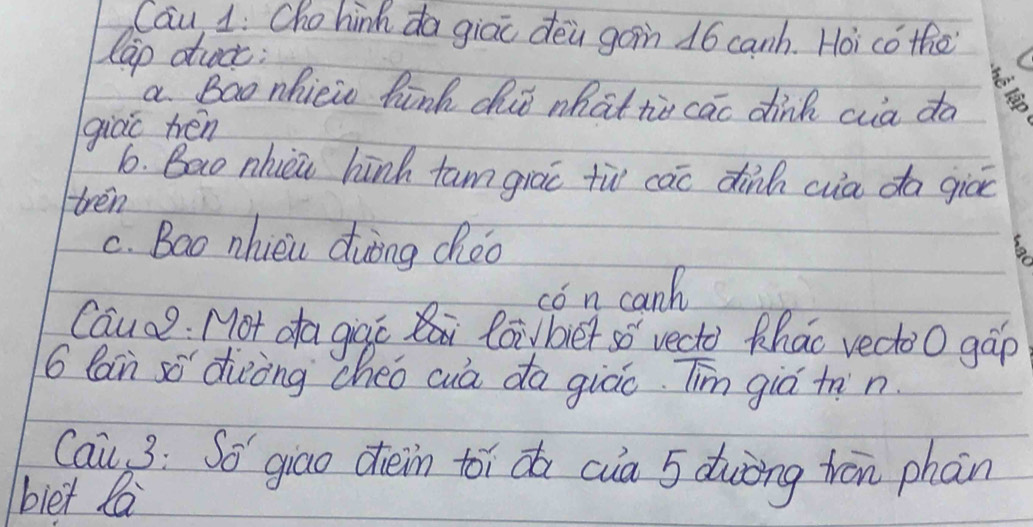 Câu 1: Cho hình đa giác đều gồm 16 cạnh. Hỏi có thể
lập được:
a. Bao nhiêu hình chữ nhật từ các đỉnh của đa
giác trên
b. Bao nhiêu hình tam giác từ các đỉnh của đa giác
trên
c. Bao nhiêu đường chéo
có n cạnh
Câu 2: Một đa giác lồi biết số vectơ khác vectơ 0 gấp
6 lần số đường chéo của đa giác. Tìm giá trị n.
Câu 3: Số giao điểm tối đa của 5 đường tròn phân
biệt là